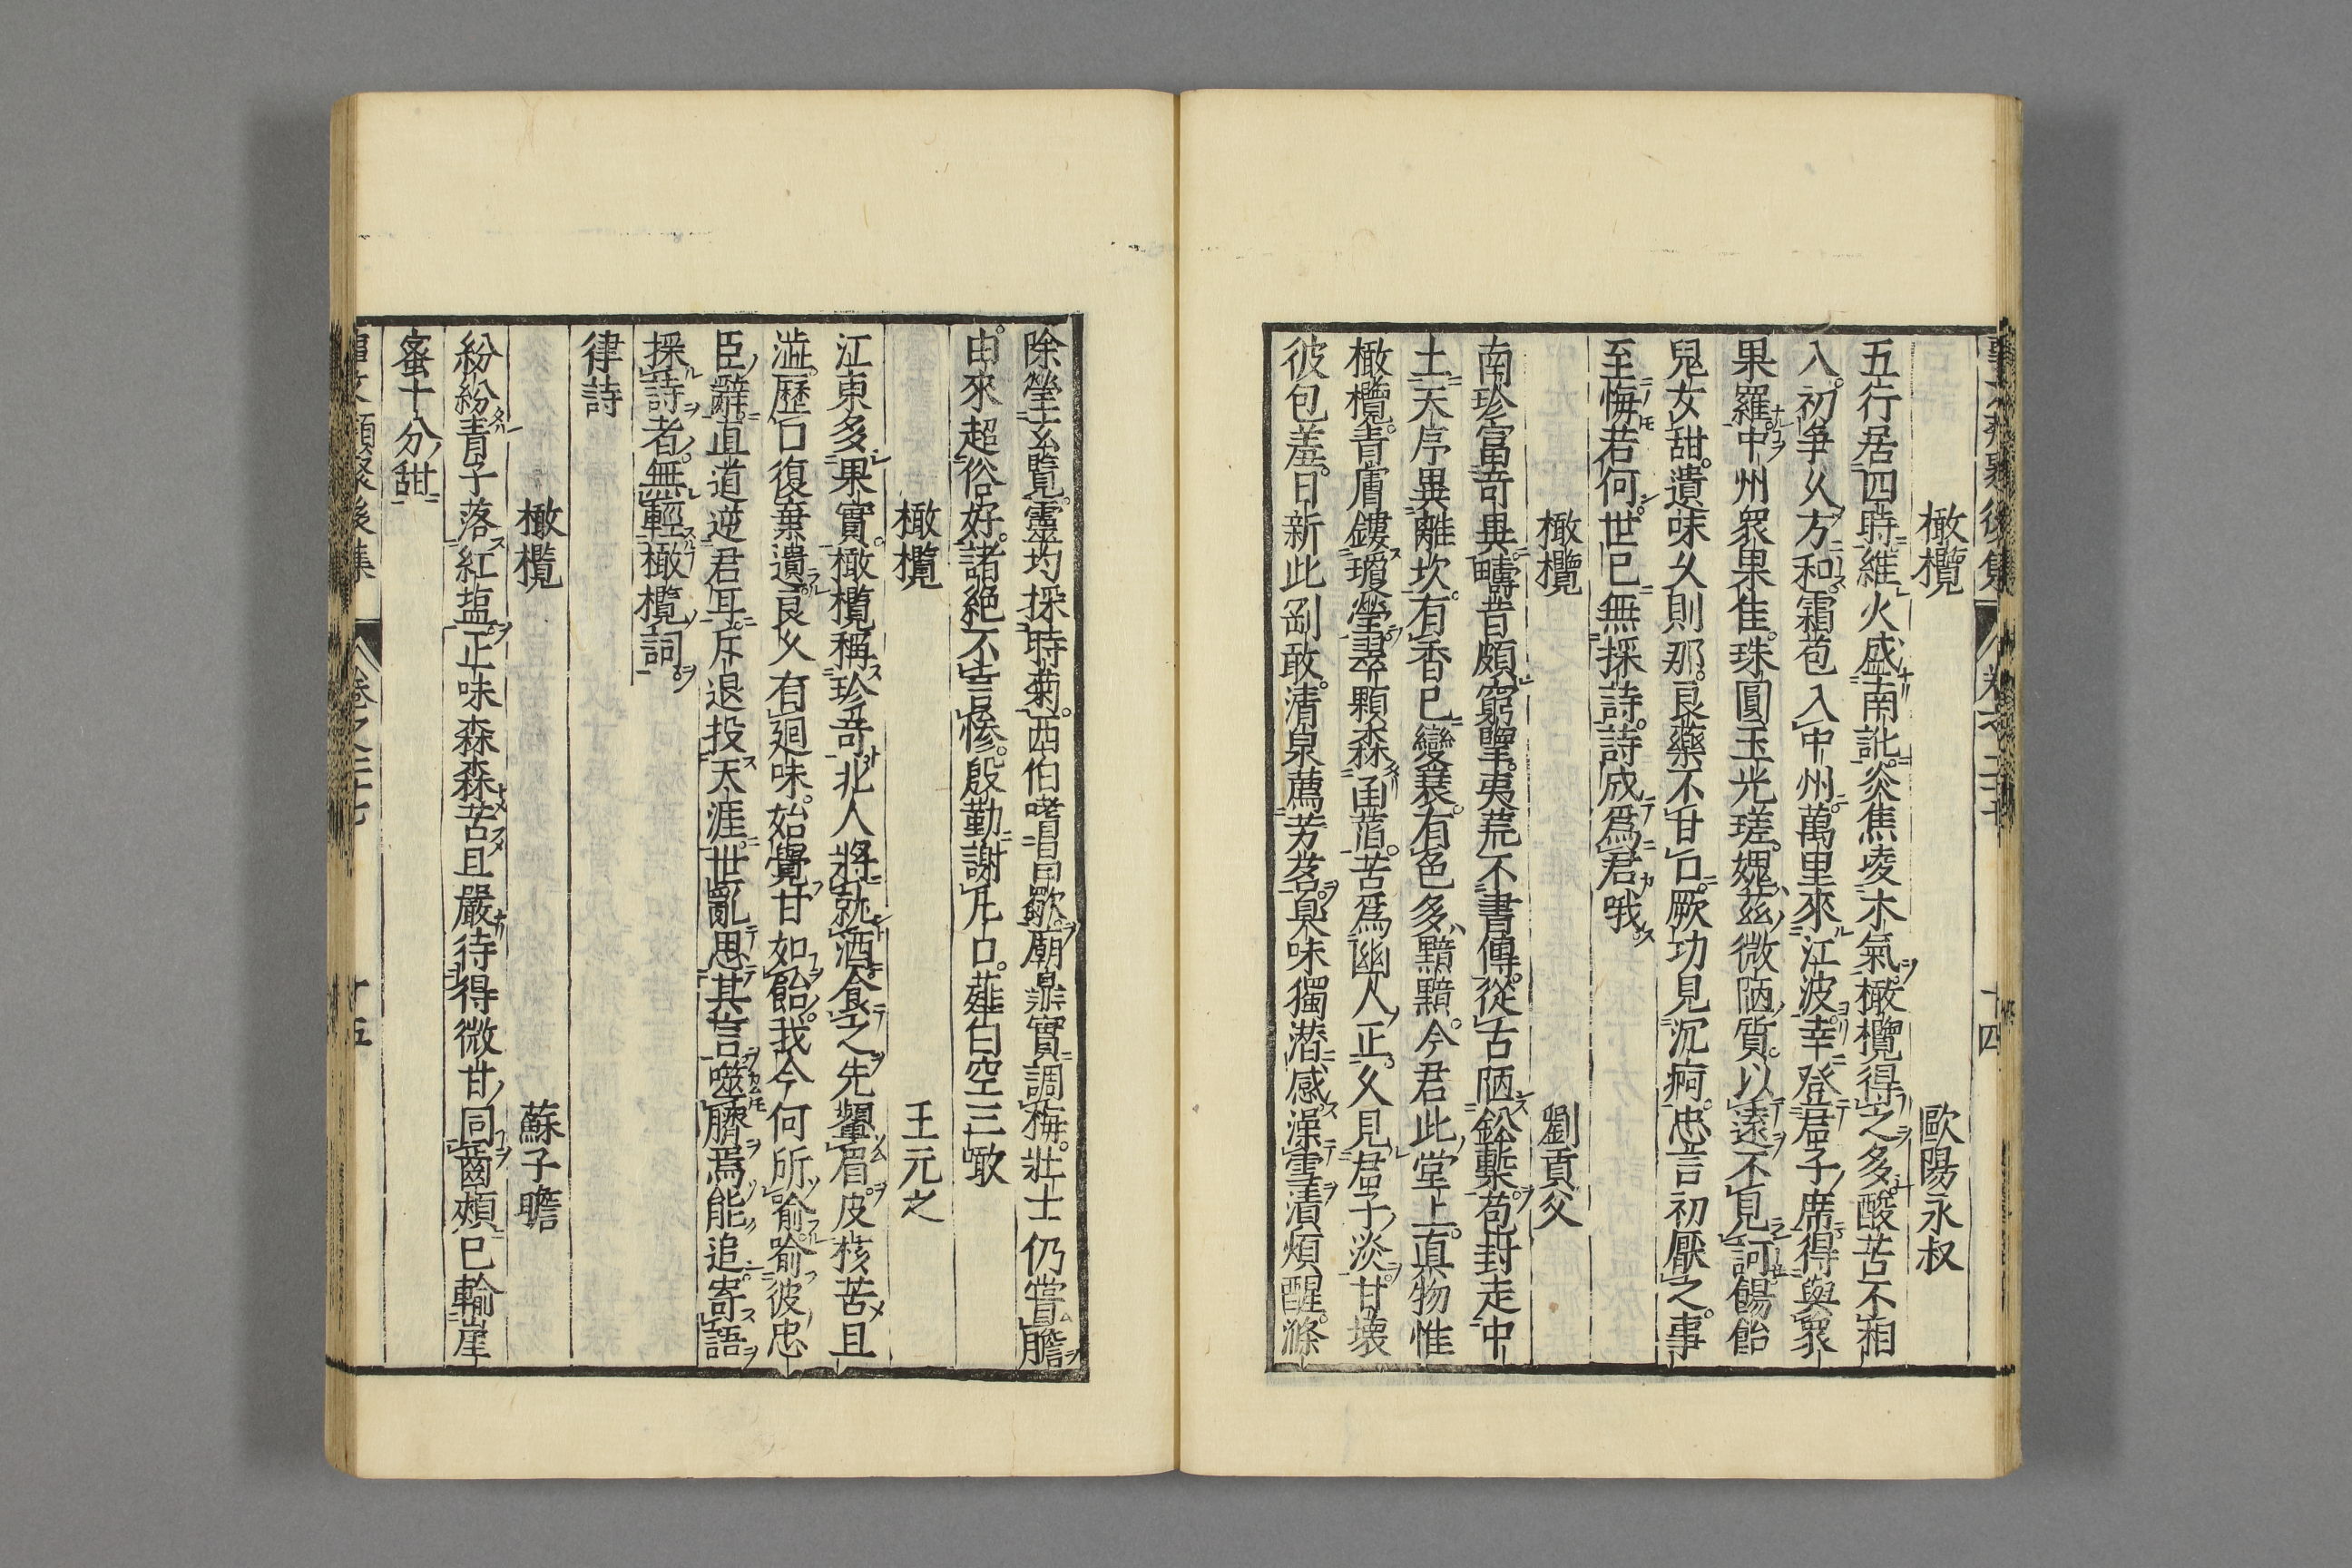 橄欖　歐陽永叔
五行居四時維火盛南訛炎焦凌木氣橄欖得之多酸苦不相
入初爭久方和霜苞入中州萬里來江波幸登君子席得與衆
果羅中州衆果佳珠圓玉光瑳媿茲微陋質以遠不見訶餳飴
兒女甜遺味久則那良藥不甘口厥功見沉痾忠言初厭之事
至悔若何世已無採詩詩成爲君哦
橄欖　劉貢父
南珍富奇異疇昔頗窮覽夷荒不書傳從古陋鈆槧苞封走中
土天序異離坎有香已變衰有色多黯黯今君此堂上眞物惟
橄欖青膚鏤瓊瑩翠顆森函萏苦爲幽人正久見君子淡甘壞
彼包羞日新此剛敢清泉薦芳茗臭味獨潜感澡雪漬煩酲滌
除瑩玄覽靈均採時菊西伯嗜昌歜廟鼎實調梅壯士仍嘗膽
由來超俗好諸絕不言慘殷勤謝凡口薤白空三噉
橄欖　王元之
江東多果實橄欖稱珍奇北人將就酒食之先顰眉皮核苦且
澁歷口復棄遺良久有廻味始覺甘如飴我今何所喻喻彼忠
臣辭直道逆君耳斥退投天涯世亂思其言噬臍焉能追寄語
採詩者無輕橄欖詞
律詩
橄欖　蘇子瞻
紛紛青子落紅塩正味森森苦且嚴待得微甘同齒頰已輸崖
蜜十分甜
後集　卷之二十七　十五